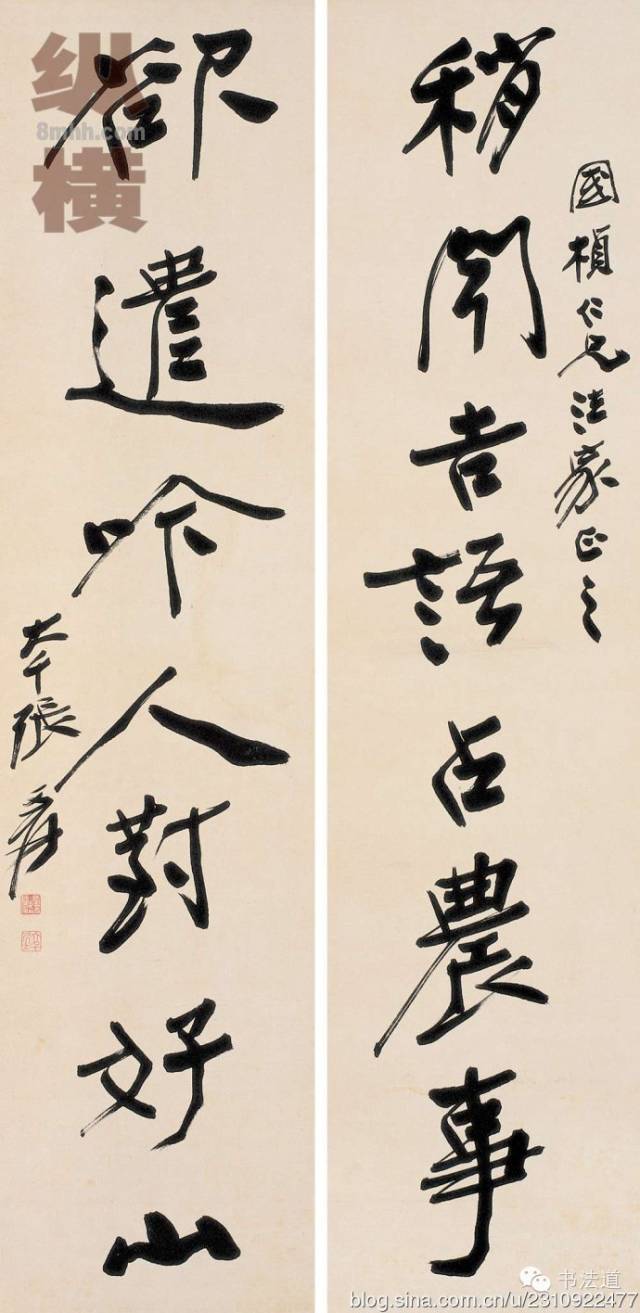 國楨仁兄法家正之
稍聞吉語占農事
卻遣吟人對好山
大千張爰
纵
8mhh.com
横
书法道
blog.sina.com.cn/u/2310922477